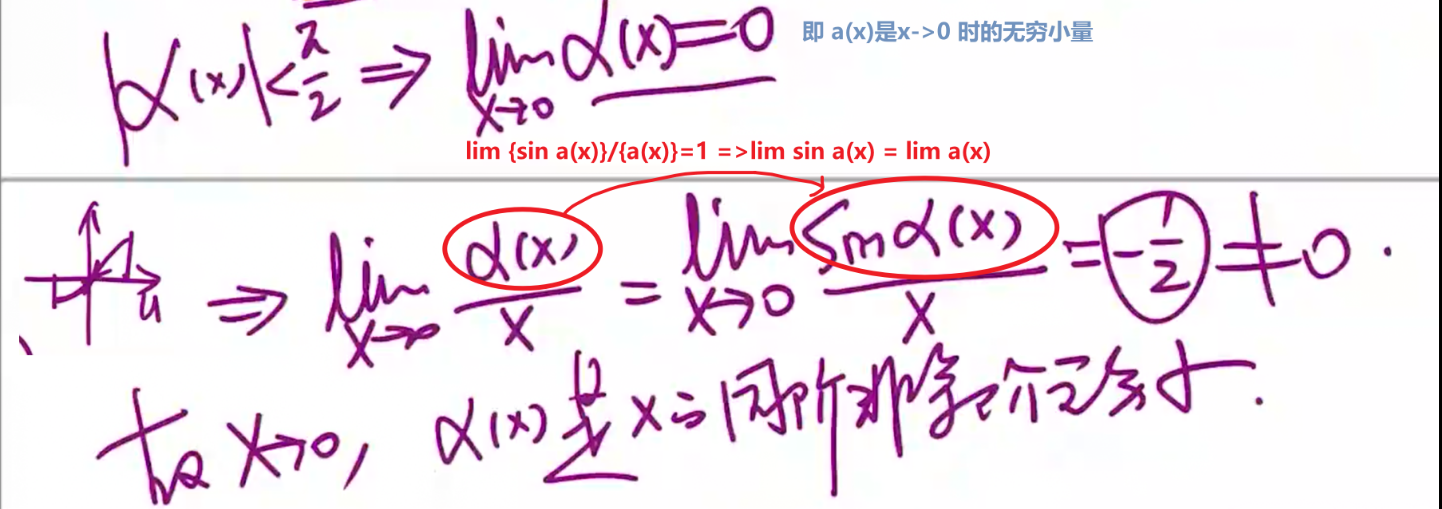 |α(x)|<π/2 ⇒ lim_{x→0} α(x)=0 即 a(x)是x->0 时的无穷小量
lim {sin a(x)}/{a(x)}=1 =>lim sin a(x) = lim a(x)
u ⇒ lim_{x→0} α(x)/x = lim_{x→0} sinα(x)/x = -1/2 ≠0.
故 x→0, α(x)是x的同阶非等价无穷小.